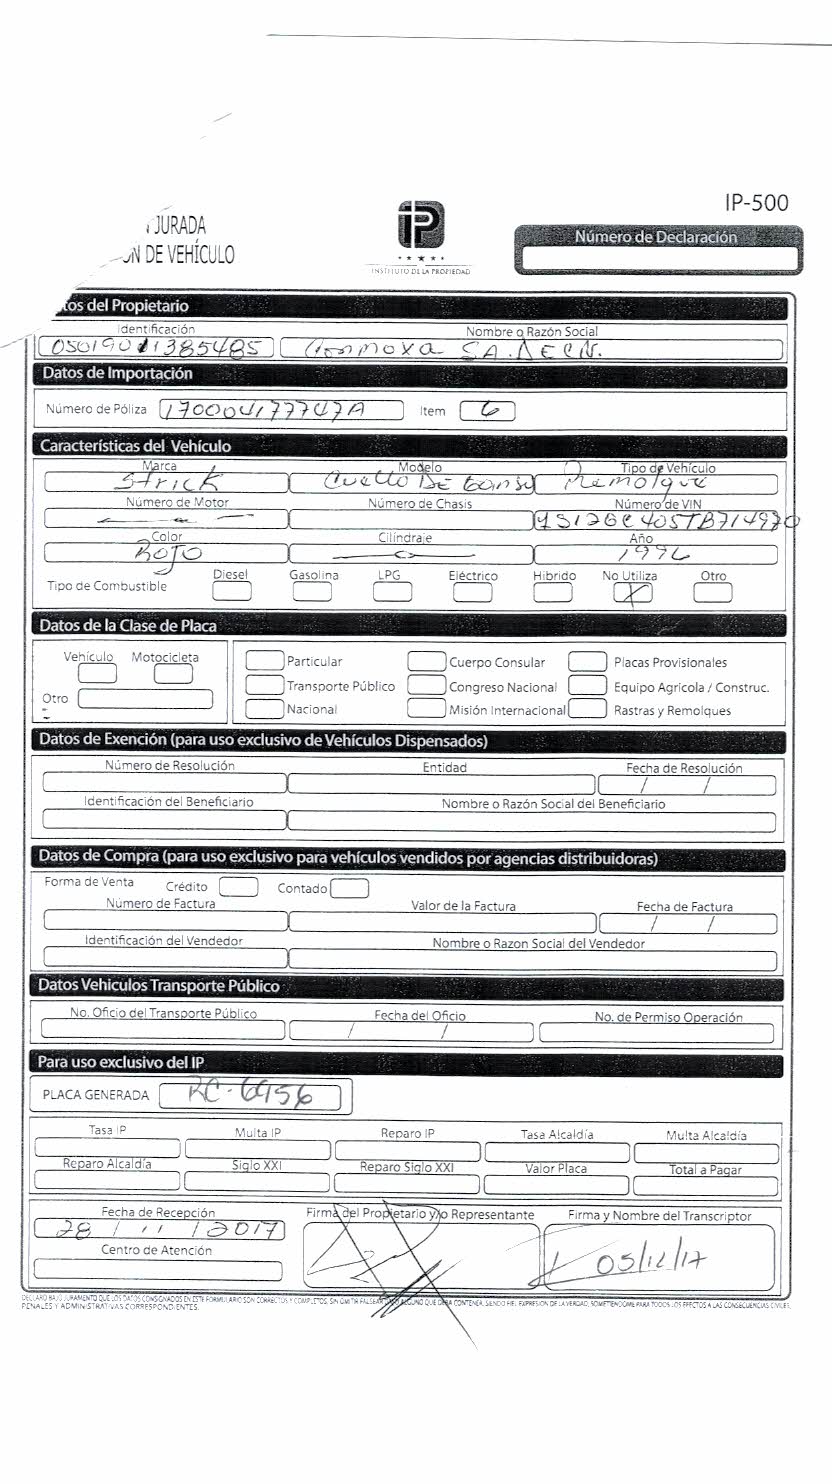 IP-500
JURADA
ÓN DE VEHÍCULO
iP
INSTITUTO DE LA PROPIEDAD
Número de Declaración
tos del Propietario
Identificación Nombre o Razón Social
05019011385485 S.A. DE C.V.
Datos de Importación
Número de Póliza 170004177747A Item 6
Características del Vehículo
Marca Modelo Tipo de Vehículo
Strick Cuello De Ganso Remolque
Número de Motor Número de Chasis Número de VIN
1S12GC405TB714970
Color Cilíndraje Año
ROJO 1996
Tipo de Combustible Diesel Gasolina LPG Eléctrico Hibrido No Utiliza Otro
X
Datos de la Clase de Placa
Vehículo Motocicleta
Otro
Particular Cuerpo Consular Placas Provisionales
Transporte Público Congreso Nacional Equipo Agricola / Construc.
Nacional Misión Internacional Rastras y Remolques
Datos de Exención (para uso exclusivo de Vehículos Dispensados)
Número de Resolución Entidad Fecha de Resolución
/ /
Identificación del Beneficiario Nombre o Razón Social del Beneficiario
Datos de Compra (para uso exclusivo para vehículos vendidos por agencias distribuidoras)
Forma de Venta Crédito Contado
Número de Factura Valor de la Factura Fecha de Factura
/ /
Identificación del Vendedor Nombre o Razon Social del Vendedor
Datos Vehiculos Transporte Público
No. Oficio del Transporte Público Fecha del Oficio No. de Permiso Operación
/ /
Para uso exclusivo del IP
PLACA GENERADA RC-6956
Tasa IP Multa IP Reparo IP Tasa Alcaldía Multa Alcaldía
Reparo Alcaldía Siglo XXI Reparo Siglo XXI Valor Placa Total a Pagar
Fecha de Recepción Firma del Propietario y/o Representante Firma y Nombre del Transcriptor
28 / 11 / 2017
Centro de Atención
05/12/17
DECLARO BAJO JURAMENTO QUE LOS DATOS CONSIGNADOS EN ESTE FORMULARIO SON CORRECTOS Y COMPLETOS, SIN OMITIR FALSEAR DATO ALGUNO QUE DEBA CONTENER, SIENDO FIEL EXPRESION DE LA VERDAD, SOMETIENDOME PARA TODOS LOS EFECTOS A LAS CONSECUENCIAS CIVILES,
PENALES Y ADMINISTRATIVAS CORRESPONDIENTES.